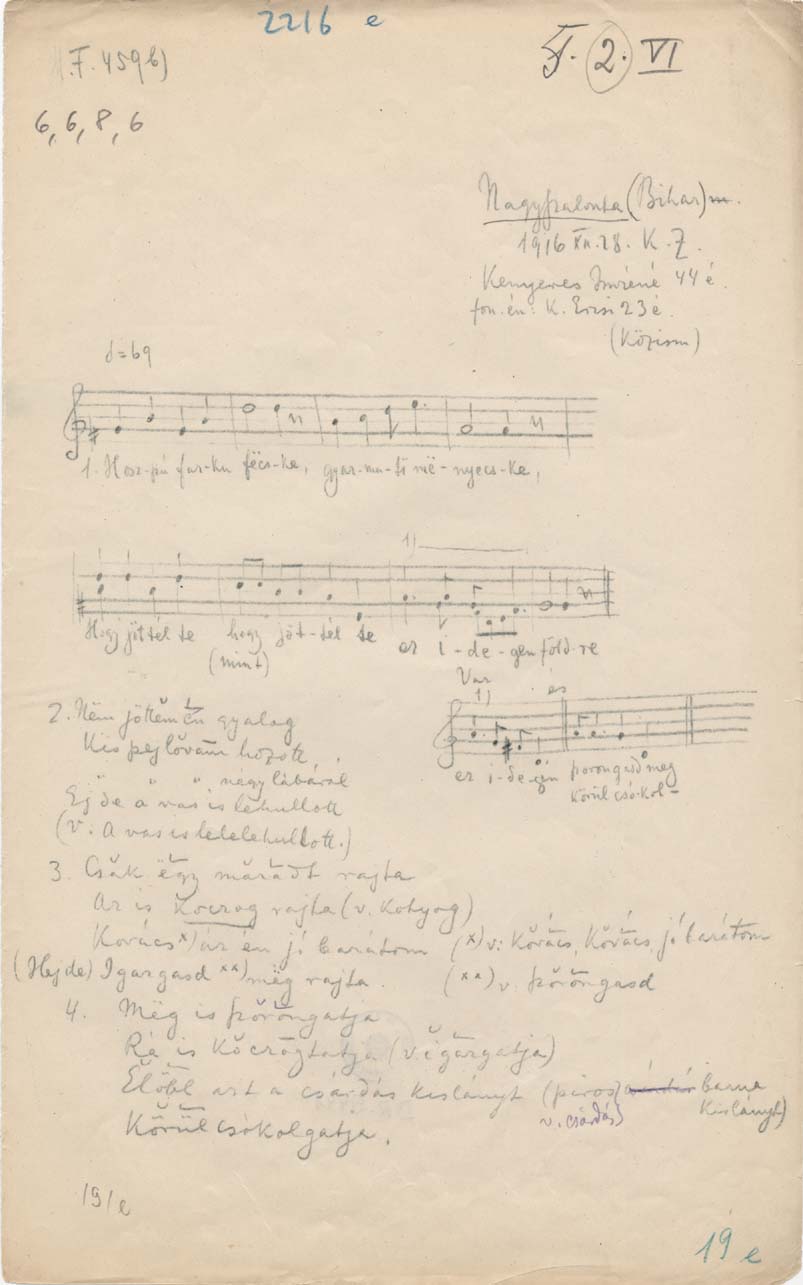 2216 e
(F. 459b)
F. 2. VI
6, 6, 8, 6
Nagyszalonta (Bihar) m.
1916 XII. 28. K. Z.
Kenyeres Imréné 44 é.
fon. én: K. Erzsi 23 é.
(Közism)
= 69
1. Hosz-szú far-ku fëcs-ke, gyar-ma-ti më-nyecs-ke,
1)
Hogy jöttél te hogy jöt-tél te ez i-de-gen föld-re
(mint)
Var
1) és
ez i-de-gën szorongasd meg
körül csó-kol-
2. Nëm jöttem én gyalog
Kis pej lovam hozott,
" " " négy lábárul
Ej de a vas is lehullott
(v: A vas is lelelehullott.)
3. Csak ëgy maradt rajta
Az is kocrog rajta (v. kotyog)
Kovács x) úr én jó barátom (x) v: Kovács, Kovács, jó barátom
(Hej de) Igazgasd xx) mëg rajta. (xx) v. szorongasd
4. Mëg is szorongatja
Rá is kocrogtatja (v. igazgatja)
Előbb azt a csárdás kislányt (piros barna
v. csárdás) kislányt)
Körül csókolgatja.
19/e
19 e